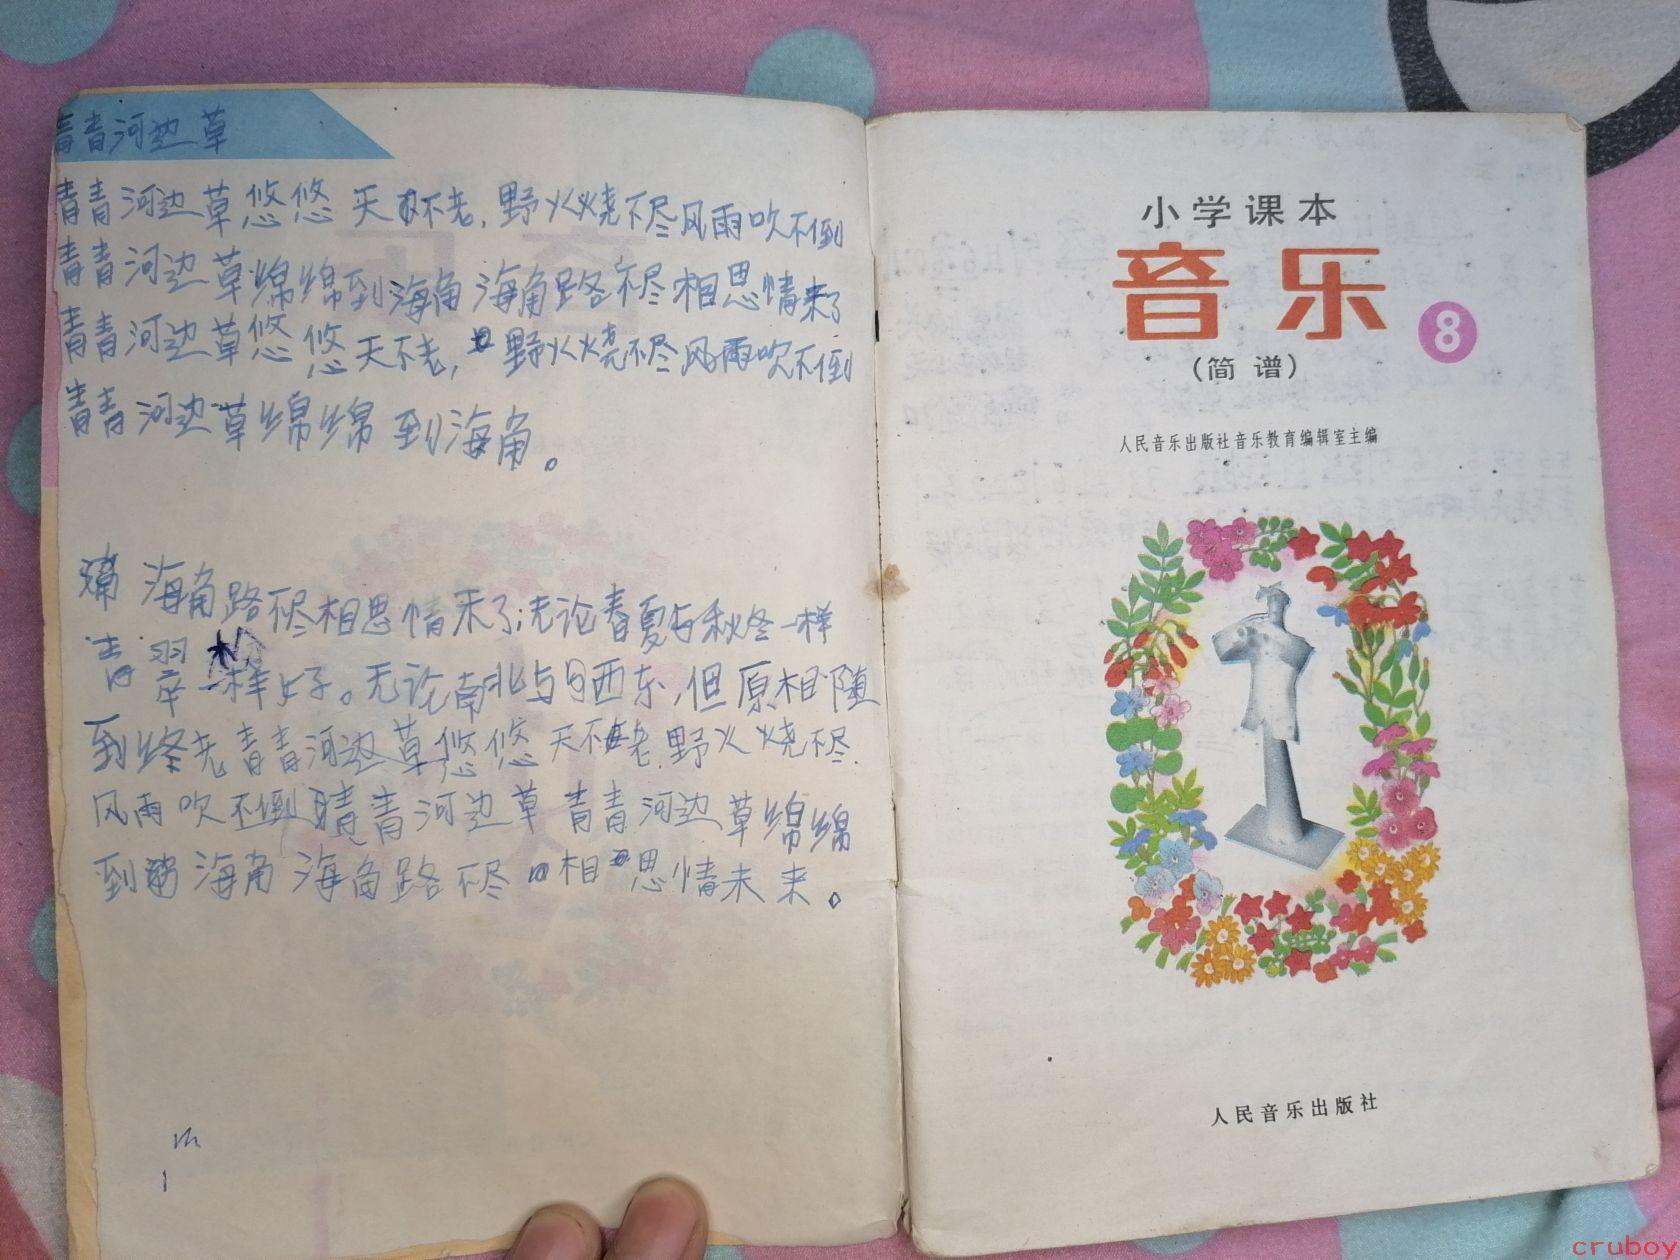 青青河边草
青青河边草悠悠天不老,野火烧不尽风雨吹不倒
青青河边草绵绵到海角海角路不尽相思情未了
青青河边草悠悠天不老,野火烧不尽风雨吹不倒
青青河边草绵绵到海角。
海角路不尽相思情未了;无论春夏与秋冬一样
青翠一样好。无论南北与西东,但原相随
到终老青青河边草悠悠天不老.野火烧不尽.
风雨吹不倒青河边草青青河边草绵绵
到海角海角路不尽相思情未来。
小学课本
音乐
8
(简谱)
人民音乐出版社音乐教育编辑室主编
人民音乐出版社
cruboy